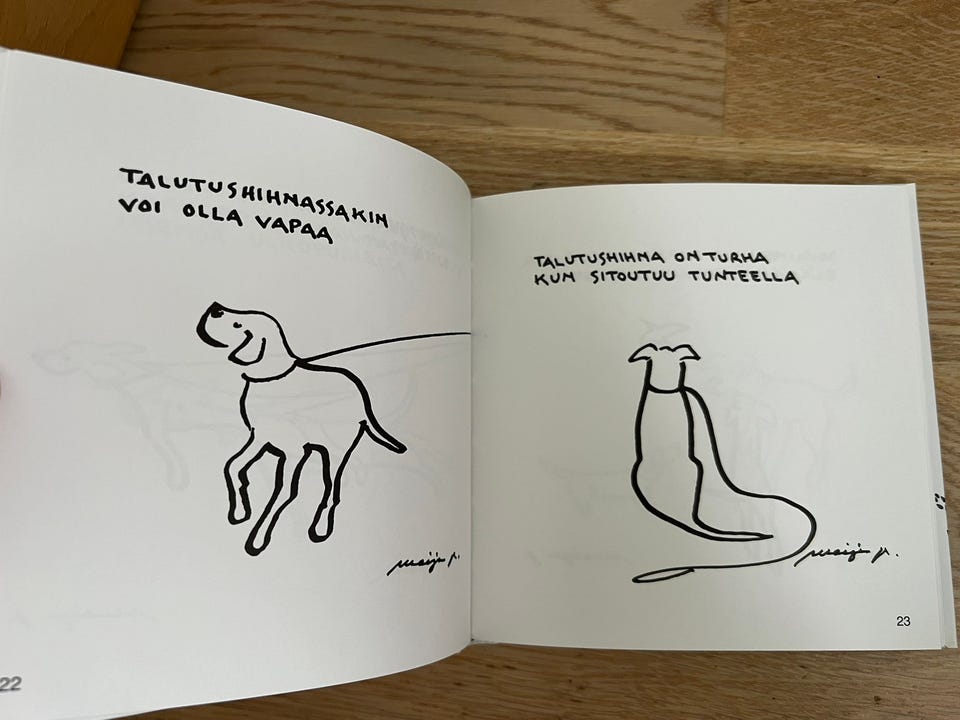 TALUTUSHIHNASSAKIN
VOI OLLA VAPAA
22
TALUTUSHIHNA ON TURHA
KUN SITOUTUU TUNTEELLA
23